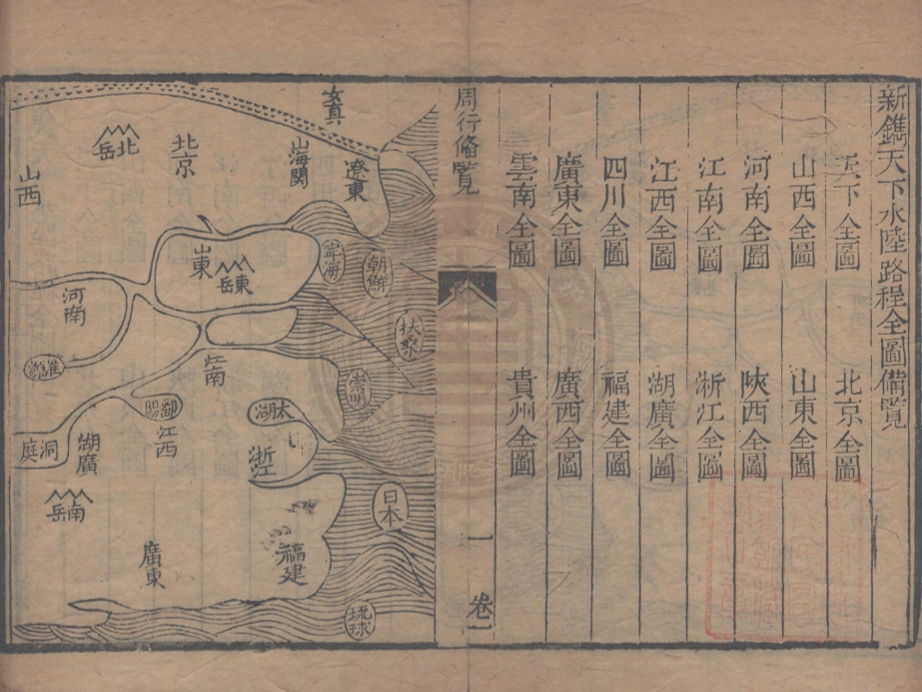 新鐫天下水陸路程全圖備覽
天下全圖　北京全圖
山西全圖　山東全圖
河南全圖　陝西全圖
江南全圖　浙江全圖
江西全圖　湖廣全圖
四川全圖　福建全圖
廣東全圖　廣西全圖
雲南全圖　貴州全圖
周行備覽
卷一
一
遼東
山海關
北京
北岳
山西
朝鮮
扶桑
山東
東岳
河南
崇明
江南
太湖
鄱陽
江西
浙江
湖廣
洞庭
南岳
日本
福建
廣東
琉球